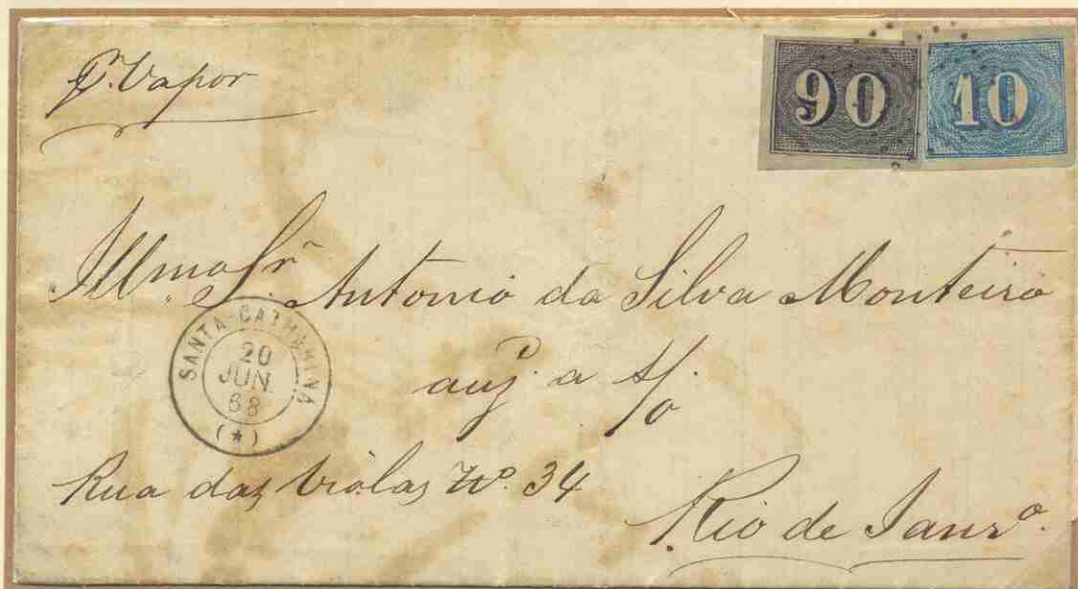 Pr. Vapor
90 10
Illmo Sr. Antonio da Silva Monteiro
SANTA CATHARINA
20
JUN
68
(★)
auz. a
Rua das Violas Nº. 34
Rio de Janrº.